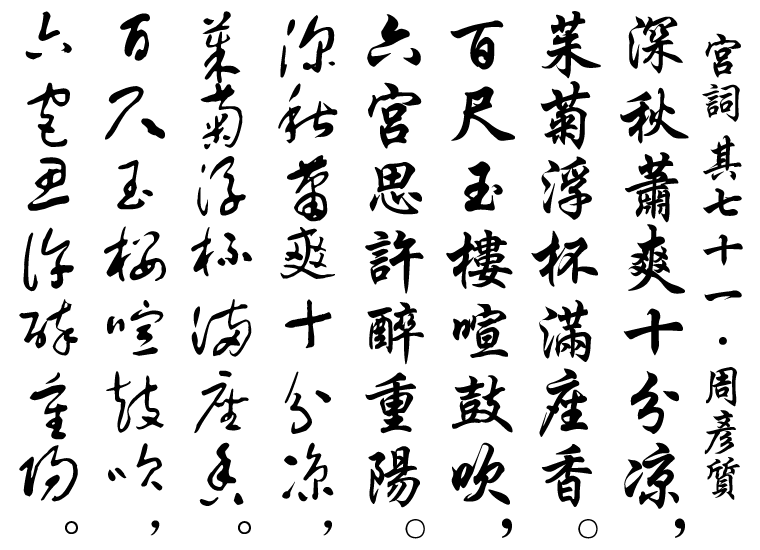 宮詞 其七十一·周彥質
深秋蕭爽十分凉，
茱菊浮杯滿座香。
百尺玉樓喧鼓吹，
六宮思許醉重陽。
深秋蕭爽十分凉，
茱菊浮杯滿座香。
百尺玉樓喧鼓吹，
六宮思許醉重陽。